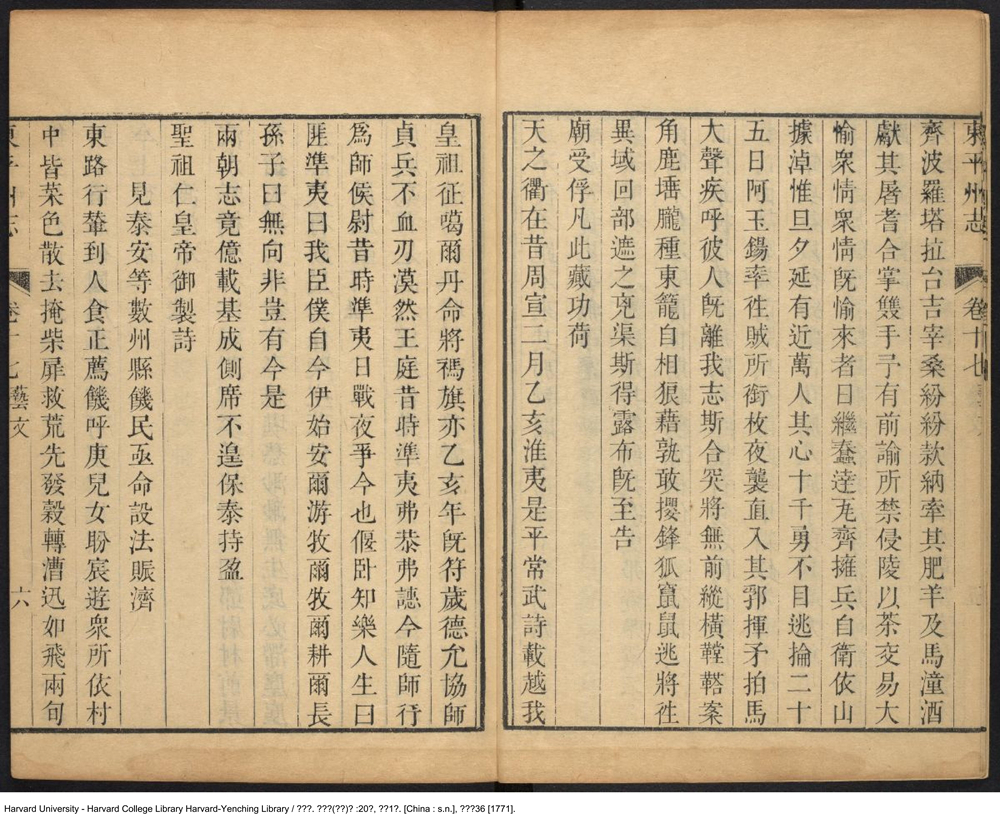 東平州志 卷十七
齊波羅塔拉台吉宰桑紛紛款納牽其肥羊及馬潼酒
獻其屠耆合掌雙手予有前諭所禁侵陵以茶交易大
愉衆情衆情旣愉來者日繼蠢達瓦齊擁兵自衛依山
據淖惟旦夕延有近萬人其心十千勇不目逃掄二十
五日阿玉錫率徃賊所銜枚夜襲直入其郛揮矛拍馬
大聲疾呼彼人旣離我志斯合突將無前縱橫鞺鞳案
角鹿埵朧種東籠自相狼藉孰敢攖鋒狐竄鼠逃將徃
異域回部遮之兇渠斯得露布旣至告
廟受俘凡此藏功荷
天之衢在昔周宣二月乙亥淮夷是平常武詩載越我
皇祖征噶爾丹命將禡旗亦乙亥年旣符歲德允協師
貞兵不血刃漠然王庭昔時準夷弗恭弗譓今隨師行
爲師侯尉昔時準夷日戰夜爭今也偃卧知樂人生曰
匪準夷曰我臣僕自今伊始安爾游牧爾牧爾耕爾長
孫子曰無向非豈有今是
兩朝志竟億載基成側席不遑保泰持盈
聖祖仁皇帝御製詩
見泰安等數州縣饑民亟命設法賑濟
東路行輦到人食正薦饑呼庚兒女盼宸遊衆所依村
中皆菜色散去掩柴扉救荒先發穀轉漕迅如飛兩旬
藝文 六
Harvard University - Harvard College Library Harvard-Yenching Library / ???. ???(??)? :20?, ??1?. [China : s.n.], ???36 [1771].